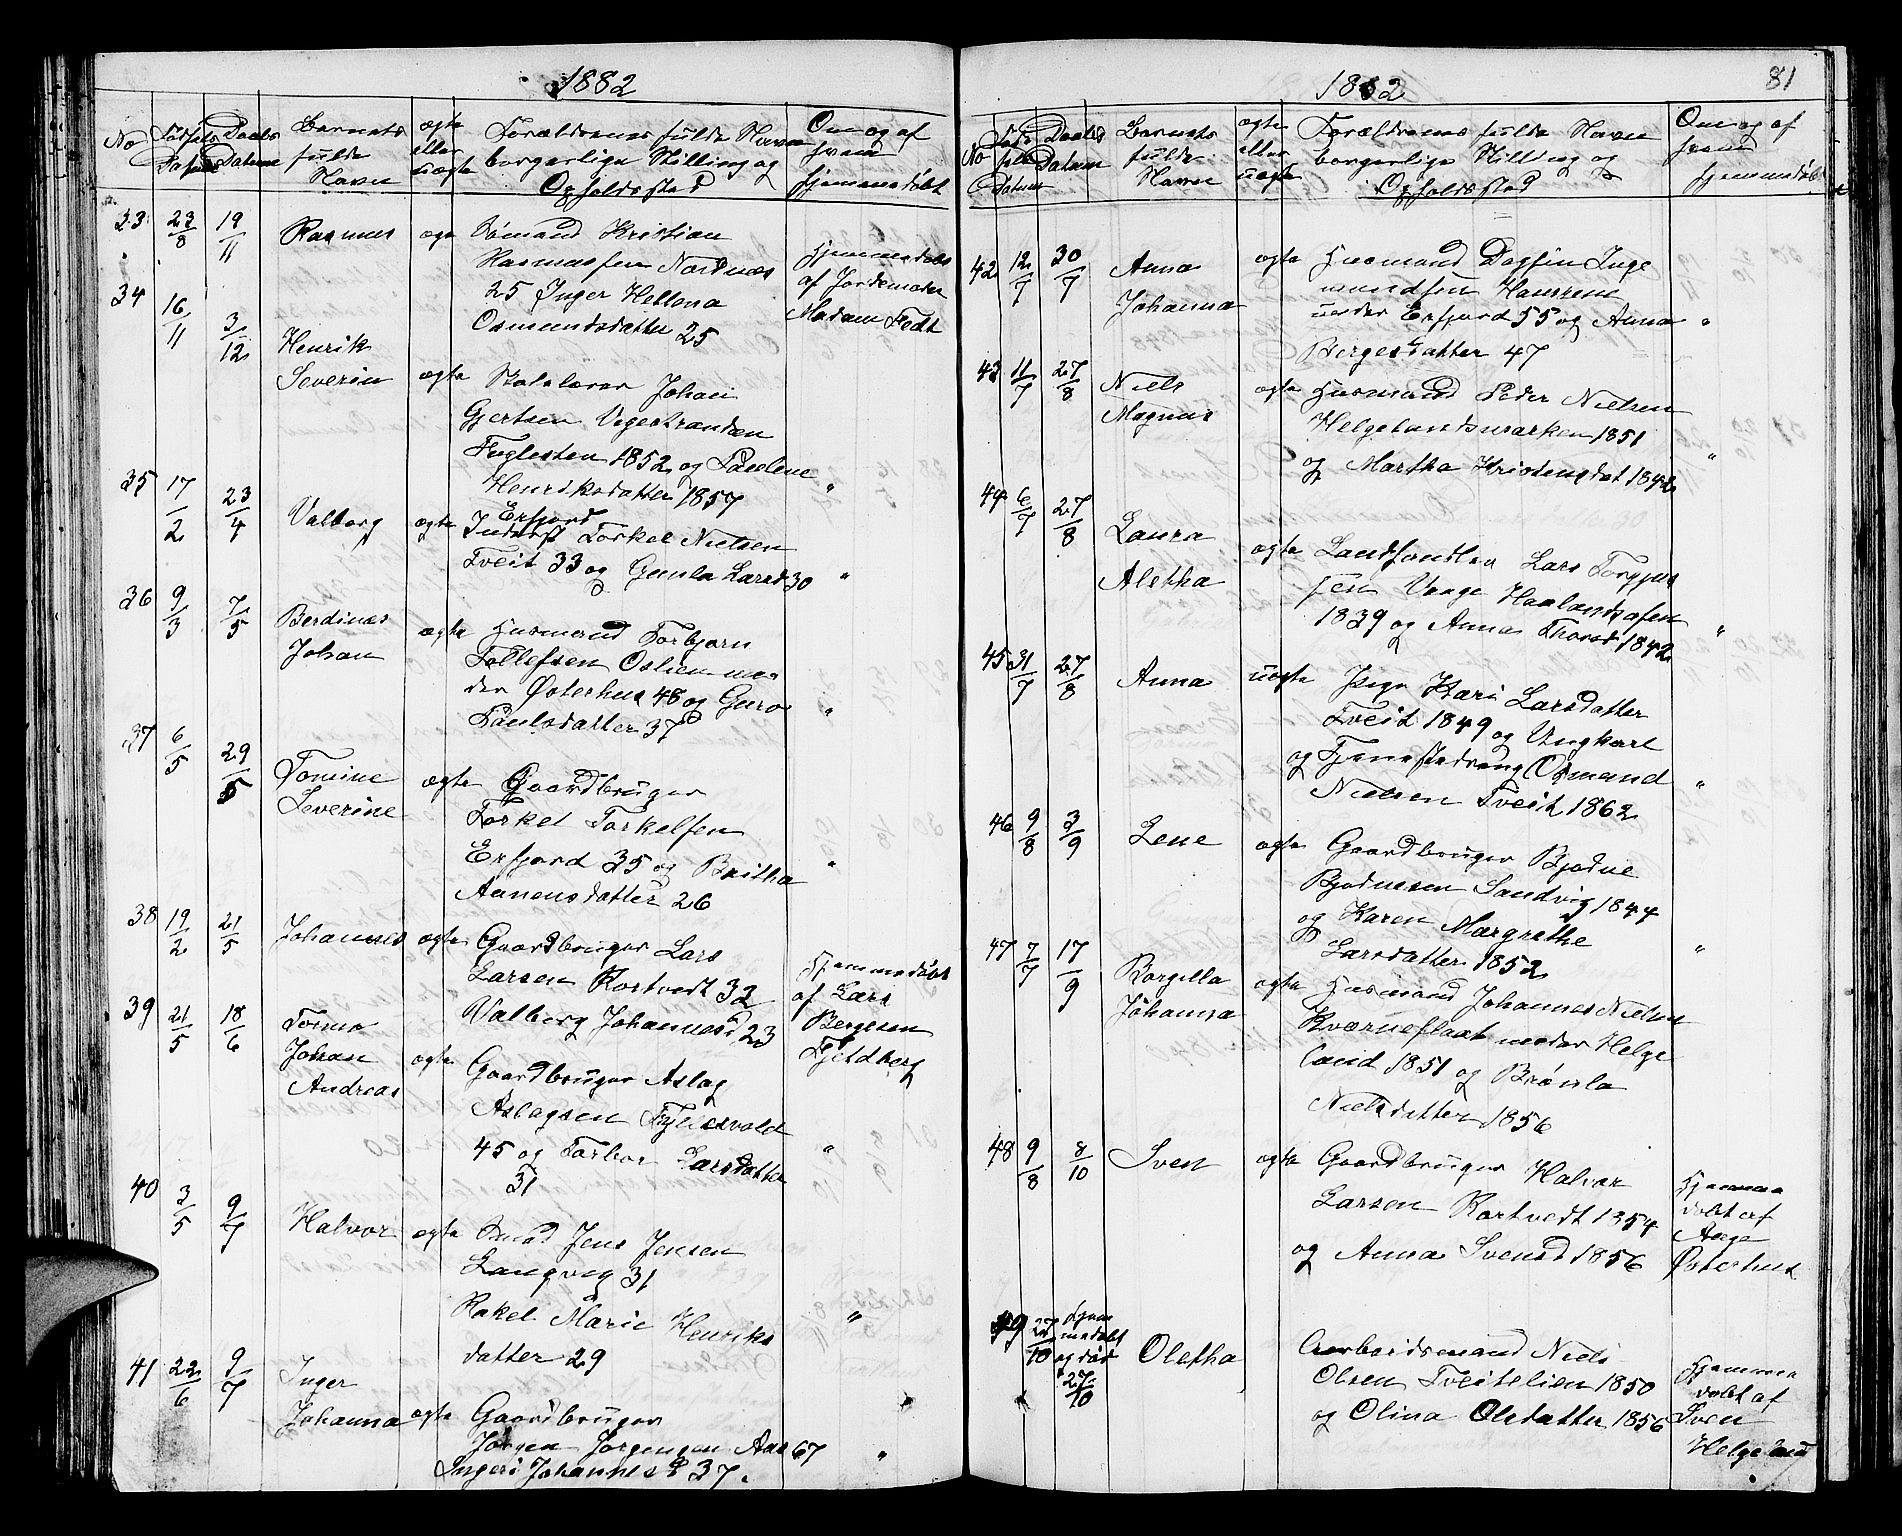 1882
No Fødsels Datum Daabs Datum Barnets fulde Navn ægte eller uægte Forældrenes fulde Navn borgerlige Stilling og Opholdssted Om og af hvem hjemmedøbt
33 23/8 19/11 Rasmus ægte Sømand Kristian
Rasmussen Nordnæs
25 Inger Hellena
Osmundsdatter 25
Hjemmedøbt
af Jordemoder
Madam Fedt
34 16/11 3/12 Henrik
Severin ægte Skolelærer Johan
Gjertsen Vegestranden
Fuglesten 1852 og Pauline
Henriksdatter 1857 "
35 17/2 23/4 Valborg ægte Inderst Torkel Nielsen
Erfjord
Tveit 33 og Gunla Larsd 30 "
36 9/3 7/5 Berdines
Johan ægte Husmand Torbjørn
Tollefsen Oslien un
der Østerhus 48 og Guro
Paulsdatter 37 "
37 6/5 29/5 Tomine
Severine ægte Gaardbruger
Torkel Torkelsen
Erfjord 35 og Britha
Aanensdatter 26 "
38 19/2 21/5 Johannes ægte Gaardbruger Lars
Larsen Kortvedt 32
Valborg Johannesd 23
Hjemmedøbt
af Lars
Bergesen
Fjeldberg
39 21/5 18/6 Tormo
Johan
Andreas ægte Gaardbruger Aslag
Aslagsen
45 og Torbor Larsdatter
31 "
40 3/5 9/7 Halvor ægte Smed Jens Jensen
Langvig 31
Rakel Marie Henriks
datter 29 "
41 22/6 9/7 Inger
Johanna ægte Gaardbruger
Jørgen Jørgensen Aas 67
Ingeri Johannesd 37. "
1882
81
No Fødsels Datum Daabs Datum Barnets fulde Navn ægte eller uægte Forældrenes fulde Navn borgerlige Stilling og Opholdssted Om og af hvem hjemmedøbt
42 12/7 30/7 Anna
Johanna ægte Husmand Dagfin Inge
mundsen
under Erfjord 55 og Anna
Bergesdatter 47 "
43 11/7 27/8 Niels
Magnus ægte Husmand Peder Nielsen
Helgelandsmarken 1851
og Martha Kristensdat 1842 "
44 6/7 27/8 Laura
Aletha ægte Landhandler Lars Torgjus
sen Vaage Haalandshafen
1839 og Anna Thorsd 1842 "
45 31/7 27/8 Anna uægte Pige Kari Larsdatter
Tveit 1849 og Ungkarl
og Tjenestedreng Osmund
Nielsen Tveit 1862 "
46 9/8 3/9 Lene ægte Gaardbruger Bjødne
Bjødnesen Sandvig 1844
og Karen Margrethe
Larsdatter 1852 "
47 7/7 17/9 Borgilla
Johanna ægte Husmand Johannes Nielsen
Kværneflaat under Helge
land 1851 og Brønla
Nielsdatter 1856
48 9/8 8/10 Sven ægte Gaardbruger Halvor
Larsen Kortvedt 1854
og Anna Svensd 1856
Hjemme
døbt af
Aage
Østerhus
49 27/10 hjem
medøbt
og død
27/10 Oletha Aarbeidsmand Niels
Olsen Tveitelien 1850
og Olina Olsdatter 1856
Hjemme
døbt af
Sven
Helgeland